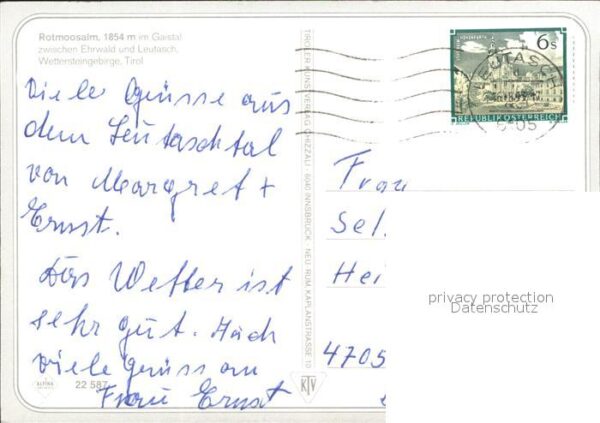 Rotmoosalm, 1854 m im Gaistal
zwischen Ehrwald und Leutasch,
Wettersteingebirge, Tirol
Viele Grüsse aus
dem Leutaschtal
von Margret +
Ernst.
Das Wetter ist
sehr gut. Auch
viele grüss an
Frau Ernst
22 587
TIROLER KUNSTVERLAG CHIZZALI · 6040 INNSBRUCK · NEU-RUM KAPLANSTRASSE 10
KTV
6 S
REPUBLIK ÖSTERREICH
LEUTASCH
Frau
Sel
Hei
4705
privacy protection
Datenschutz